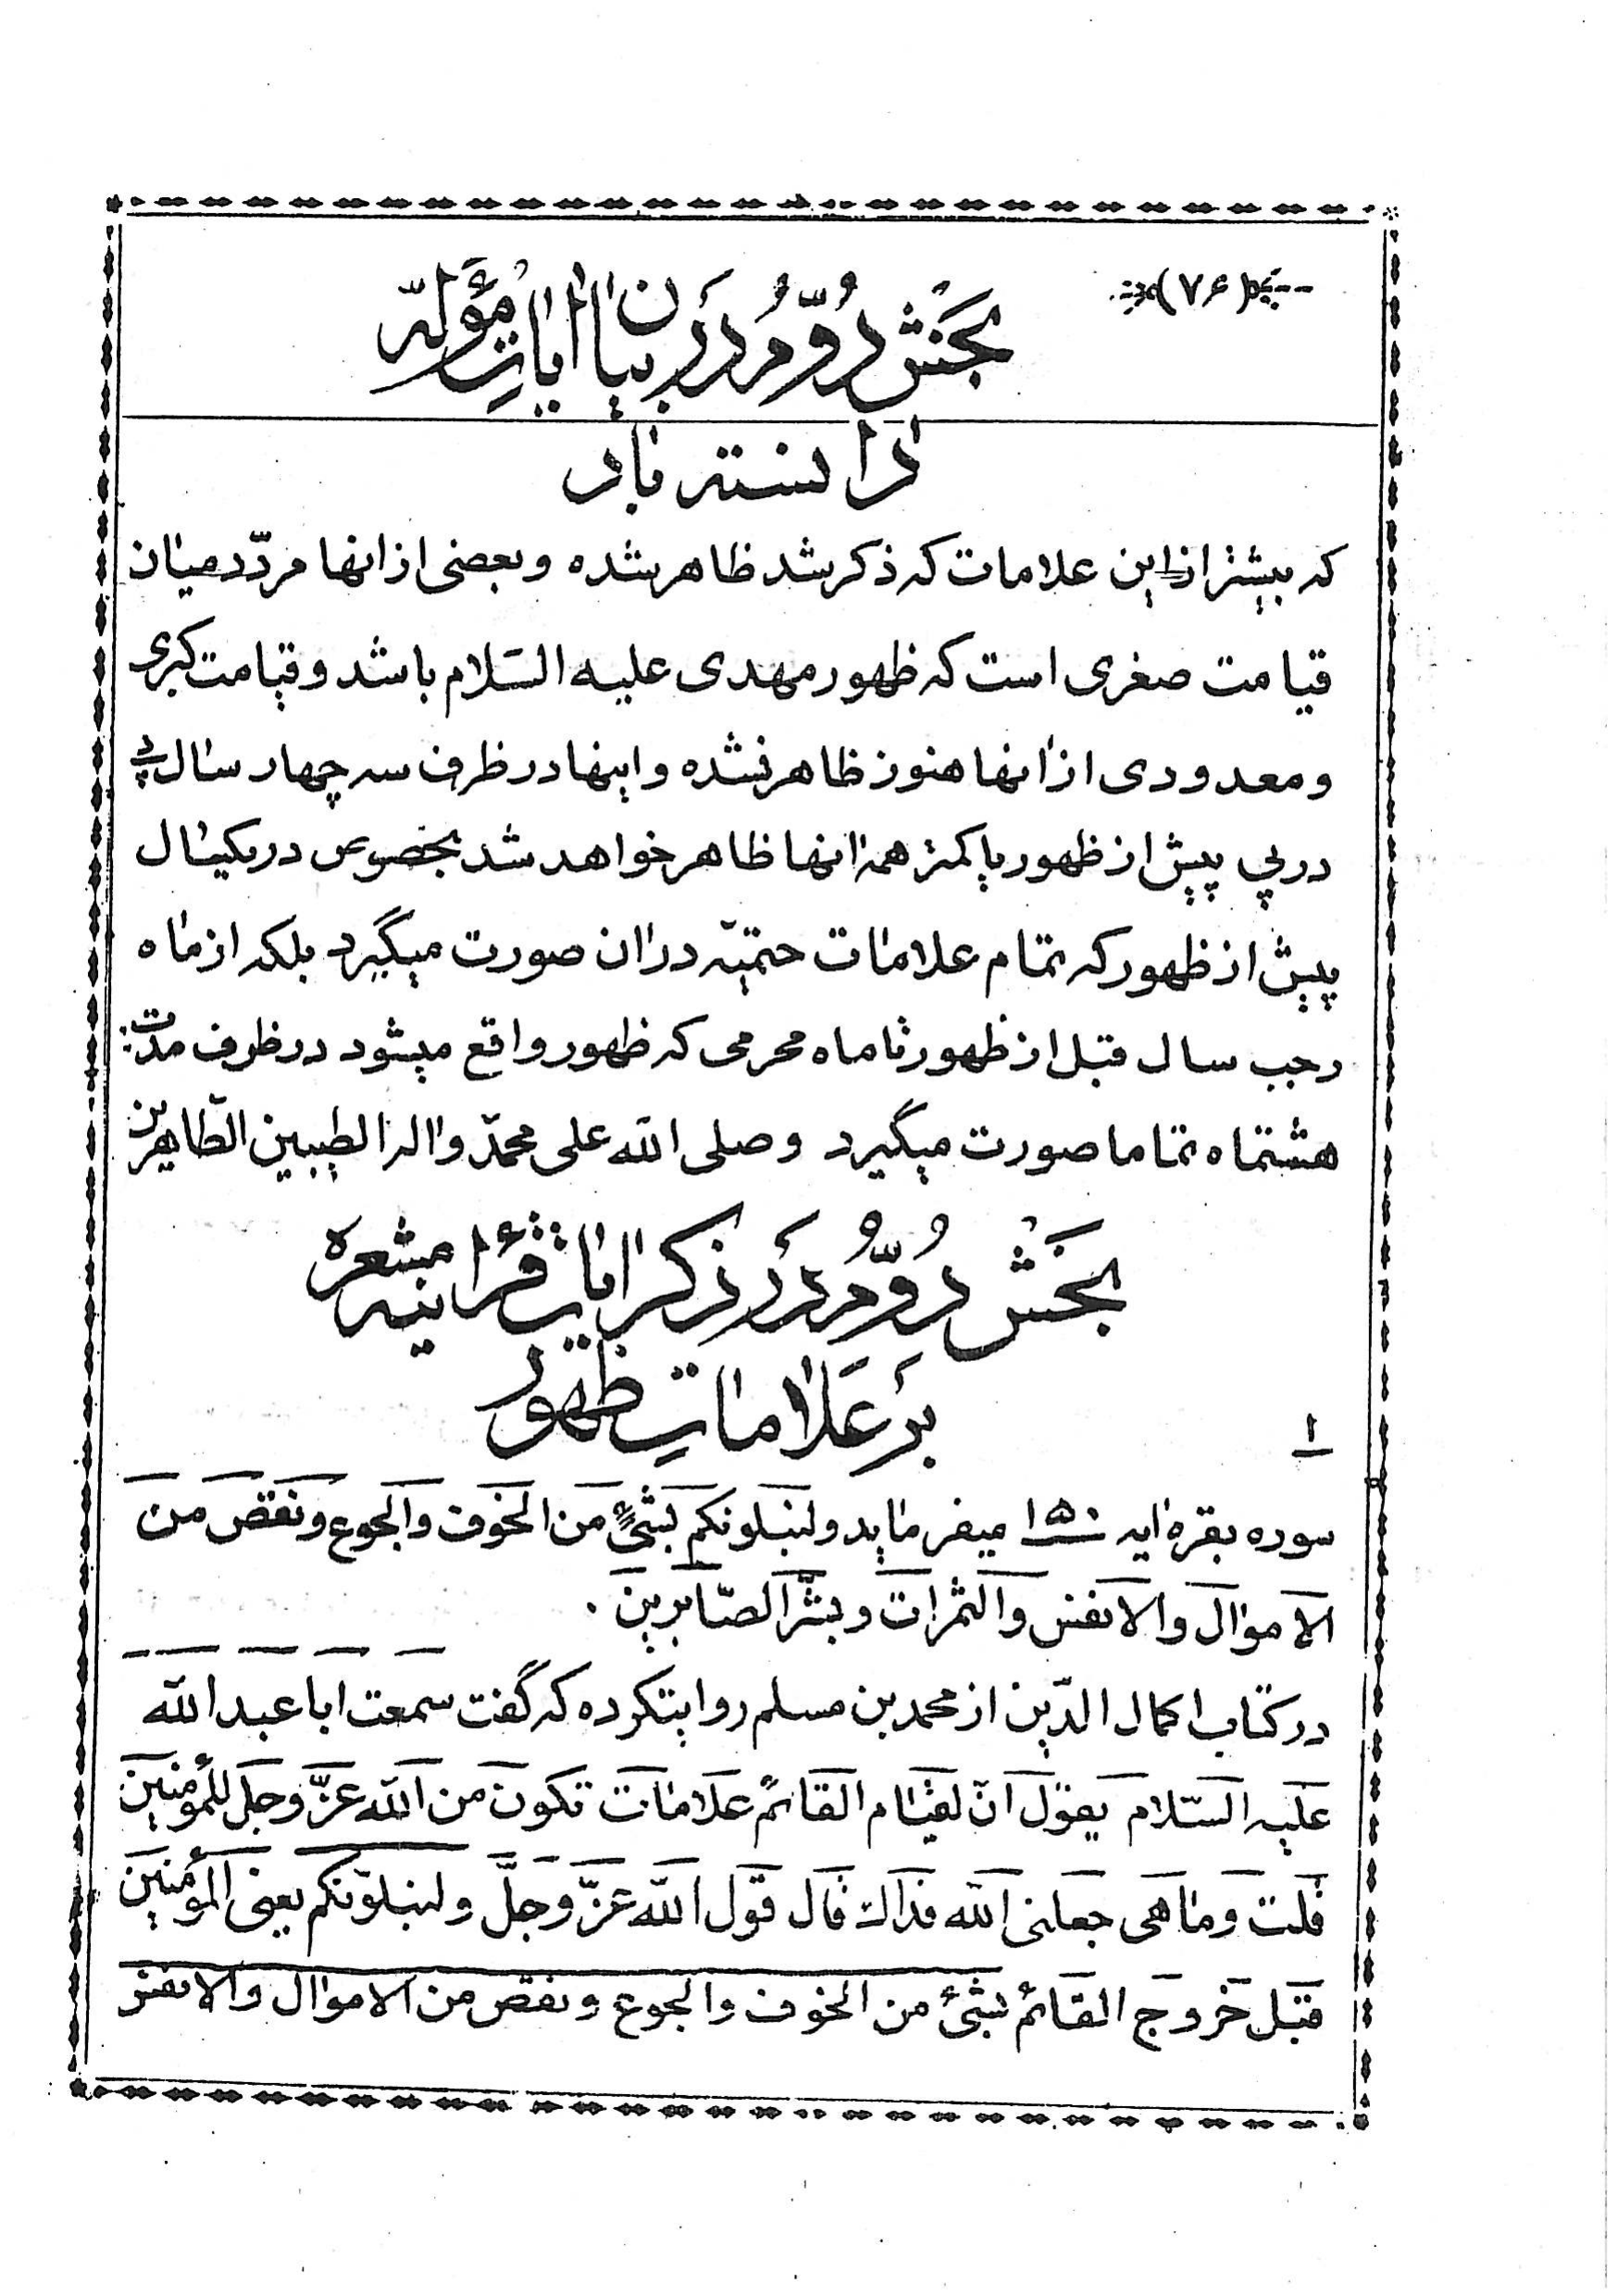 (۷۶)
بخش دوّم در بیان ایات مؤوله
دانسته باد
که بیشتر از این علامات که ذکر شد ظاهر شده و بعضی از انها مردّد میان
قیامت صغری است که ظهور مهدی علیه السّلام باشد و قیامت کبری
و معدودی از انها هنوز ظاهر نشده و اینها در ظرف سه چهار سال پی
در پی پیش از ظهور یا کمتر همه انها ظاهر خواهد شد بخصوص در یکسال
پیش از ظهور که تمام علامات حتمیّه در ان صورت میگیرد بلکه از ماه
رجب سال قبل از ظهور تا ماه محرمی که ظهور واقع میشود در ظرف مدّت
هشتماه تماما صورت میگیرد وصلی الله علی محمدّ واله الطیبین الطّاهرین
بخش دوّم در ذکر ایات قرانیه مشعره
بر علامات ظهور
۱
سوره بقره ایه ۱۵۰ میفرماید ولنبلونکم بشئٍ من الخوف والجوع ونقص من
الاموال والانفس والثمرات وبشّر الصّابرین .
در کتاب اکمال الدّین از محمد بن مسلم روایتکرده که گفت سمعت ابا عبد الله
علیه السّلام یقول انّ لقیام القائم علامات تکون من الله عزّ وجل للمؤمنین
قلت وما هی جعلنی الله فداك قال قول الله عزّ وجلّ ولنبلونّکم یعنی المؤمنین
قبل خروج القائم بشئ من الخوف والجوع ونقص من الاموال والانفس